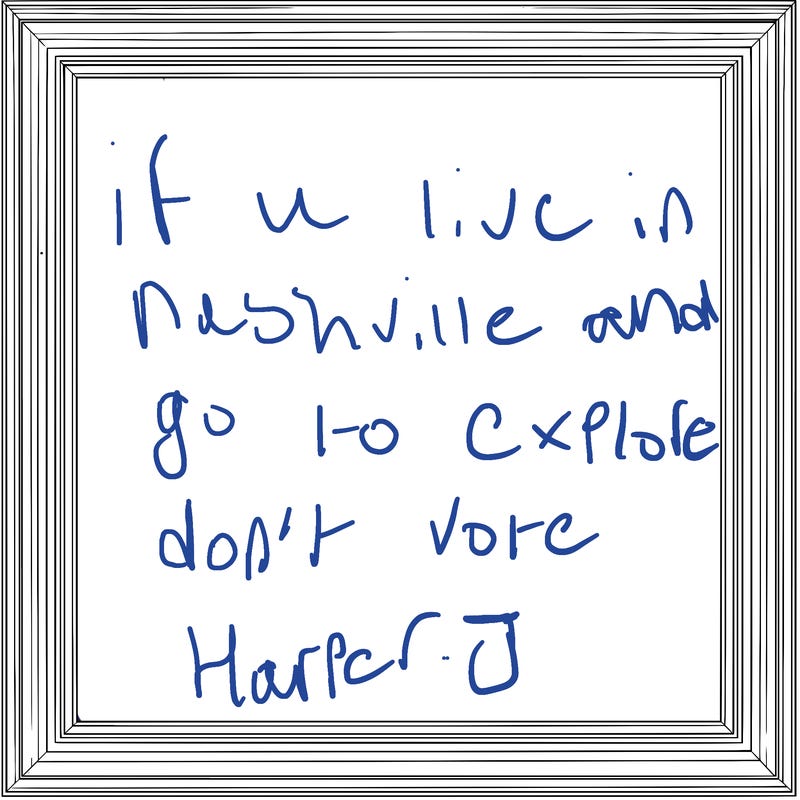 if u live in
nashville and
go to explore
don't vote
Harper.J